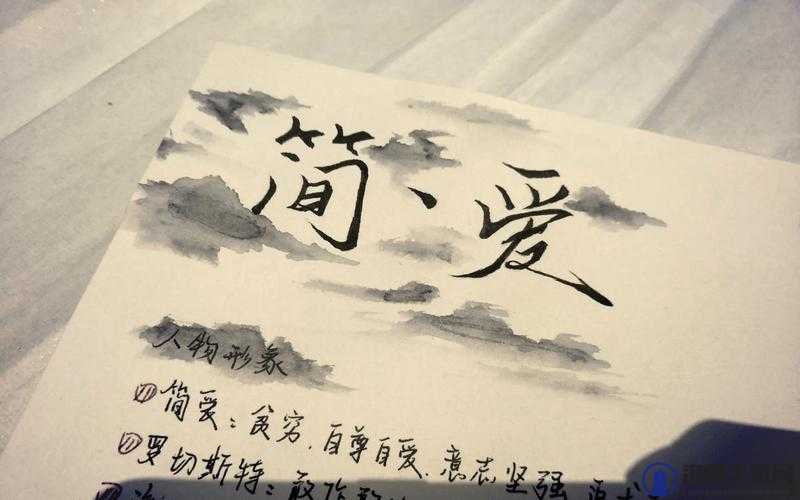 简、爱
人物形象
简爱：贫穷、自尊自爱、意志坚强、追求
罗切斯特：敢